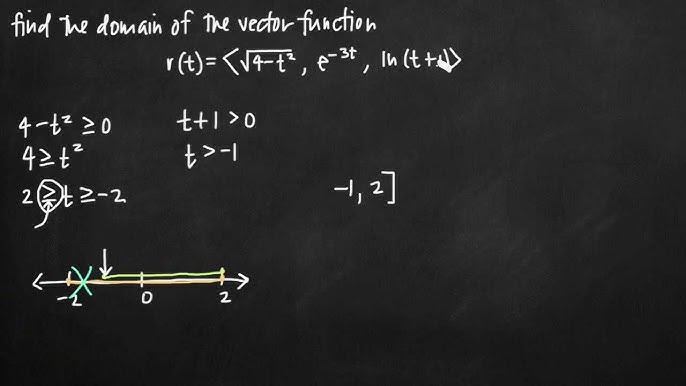 find the domain of the vector function
r(t) = ⟨√4-t², e⁻³ᵗ, ln(t+1)⟩
4-t² ≥ 0 t+1 > 0
4 ≥ t² t > -1
2 ≥ t ≥ -2 -1, 2]
-2 0 2